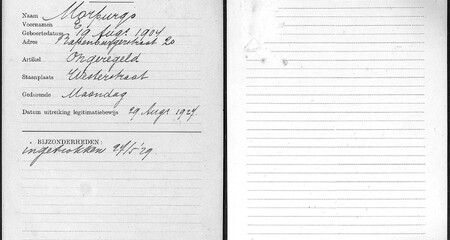 Naam Morpurgo
Voornamen E.
Geboortedatum 19 Augs 1904
Adres Rapenburgerstraat 20
Artikel Ongeregeld
Staanplaats Westerstraat
Gedurende Maandag
Datum uitreiking legitimatiebewijs 29 Augs 1927.
BIJZONDERHEDEN:
ingetrokken 24/5 '29.